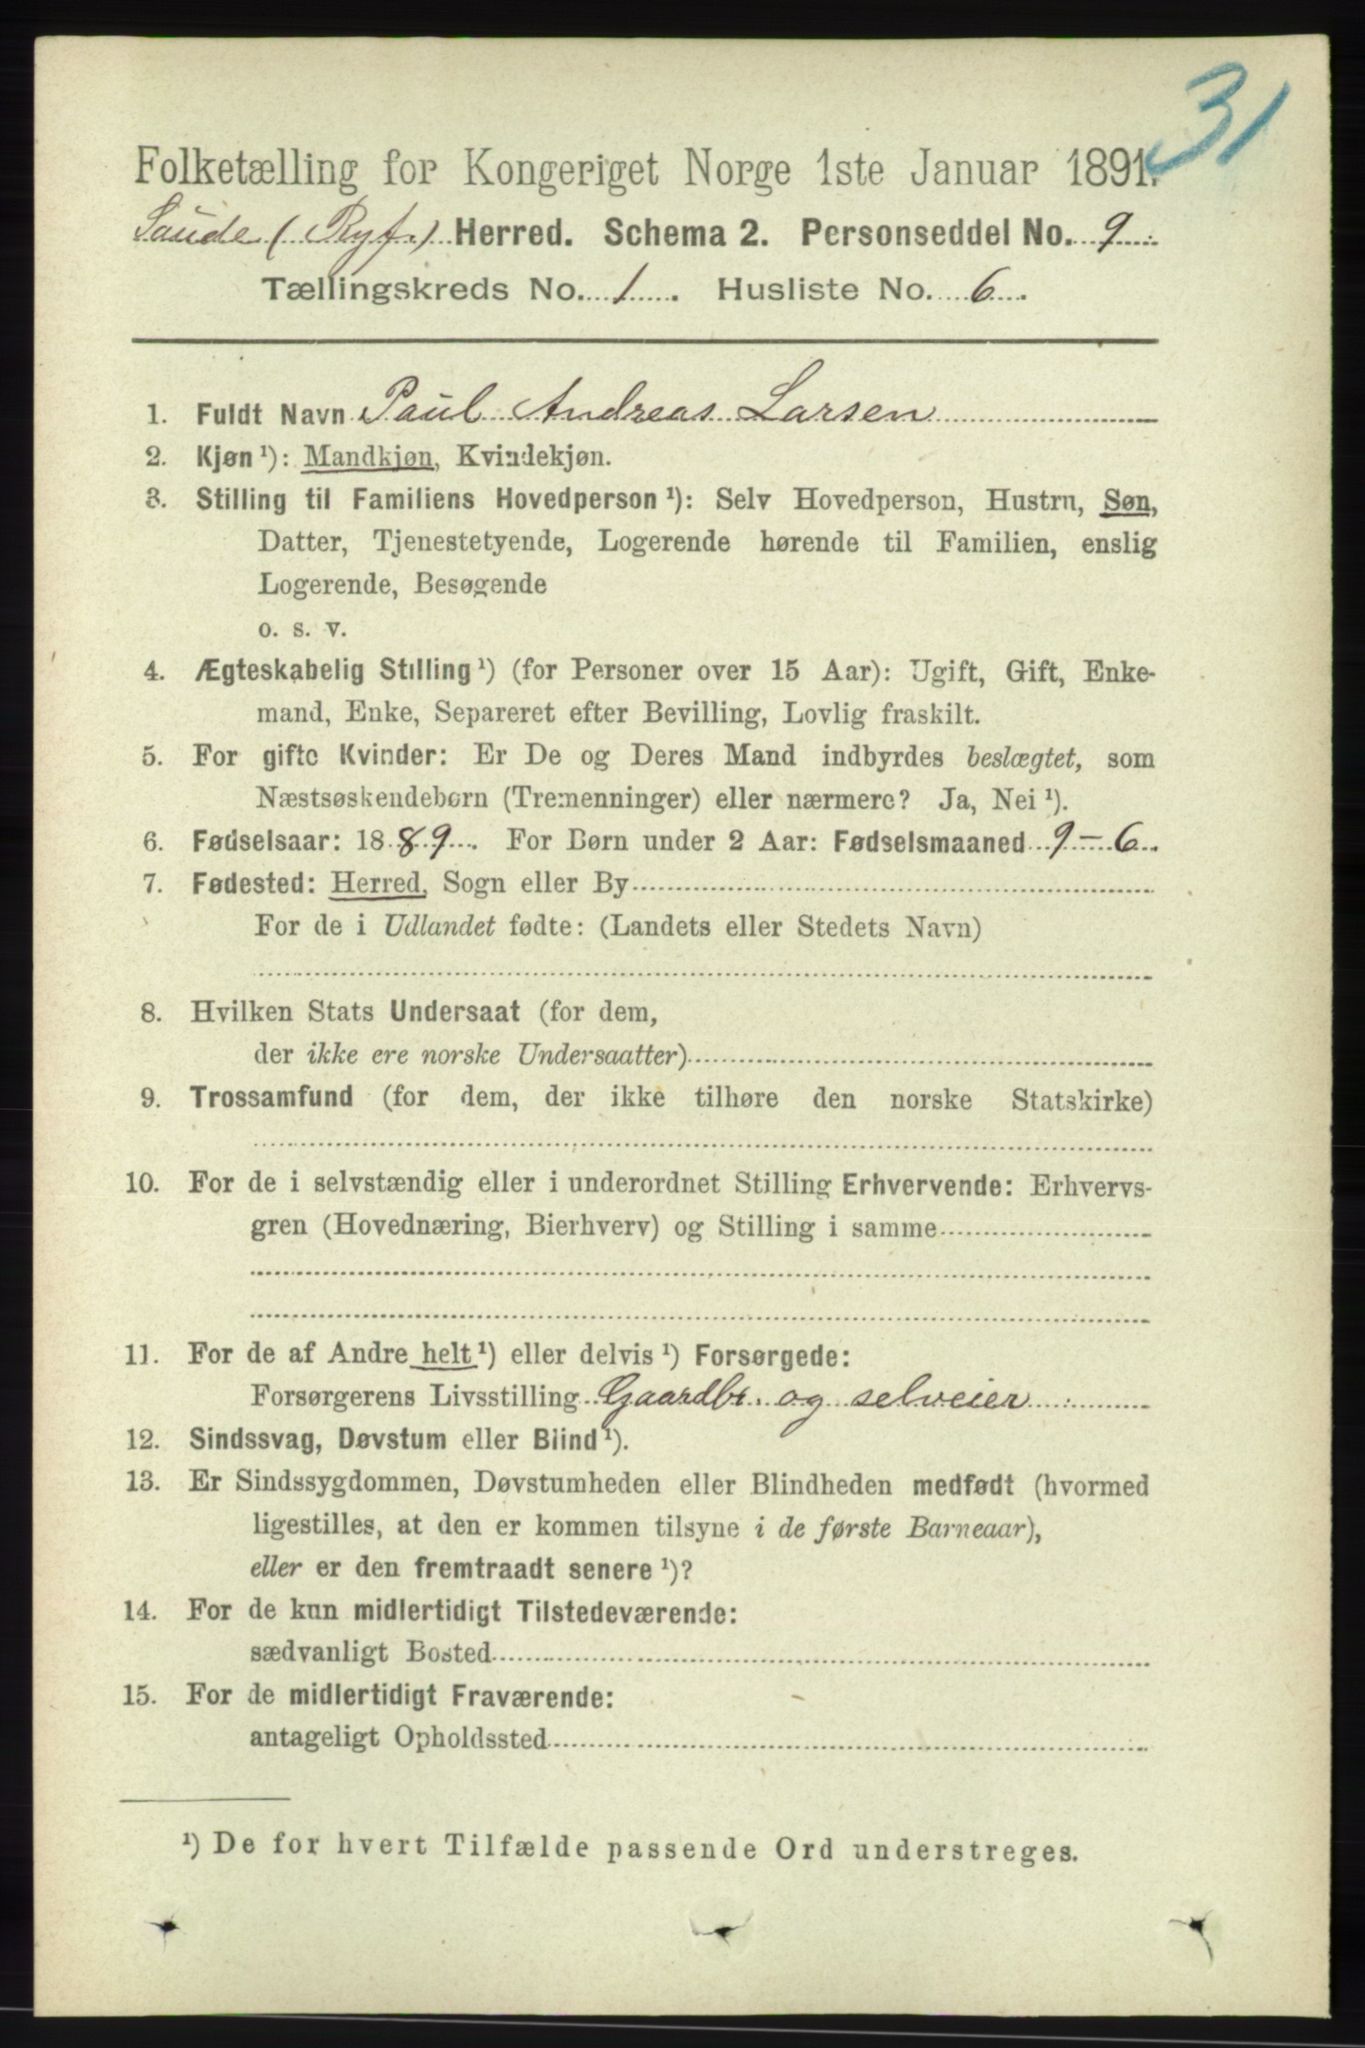 31
Folketælling for Kongeriget Norge 1ste Januar 1891.
Saude (Ryf.) Herred. Schema 2. Personseddel No. 9
Tællingskreds No. 1. Husliste No. 6.
1. Fuldt Navn Paul Andreas Larsen
2. Kjøn ¹): Mandkjøn, Kvindekjøn.
3. Stilling til Familiens Hovedperson ¹): Selv Hovedperson, Hustru, Søn,
Datter, Tjenestetyende, Logerende hørende til Familien, enslig
Logerende, Besøgende
o. s. v.
4. Ægteskabelig Stilling ¹) (for Personer over 15 Aar): Ugift, Gift, Enke-
mand, Enke, Separeret efter Bevilling, Lovlig fraskilt.
5. For gifte Kvinder: Er De og Deres Mand indbyrdes beslægtet, som
Næstsøskendebørn (Tremenninger) eller nærmere? Ja, Nei ¹).
6. Fødselsaar: 1889. For Børn under 2 Aar: Fødselsmaaned 9-6.
7. Fødested: Herred, Sogn eller By
For de i Udlandet fødte: (Landets eller Stedets Navn)
8. Hvilken Stats Undersaat (for dem,
der ikke ere norske Undersaatter)
9. Trossamfund (for dem, der ikke tilhøre den norske Statskirke)
10. For de i selvstændig eller i underordnet Stilling Erhvervende: Erhvervs-
gren (Hovednæring, Bierhverv) og Stilling i samme
11. For de af Andre helt ¹) eller delvis ¹) Forsørgede:
Forsørgerens Livsstilling Gaardbr. og selveier
12. Sindssvag, Døvstum eller Blind ¹).
13. Er Sindssygdommen, Døvstumheden eller Blindheden medfødt (hvormed
ligestilles, at den er kommen tilsyne i de første Barneaar),
eller er den fremtraadt senere ¹)?
14. For de kun midlertidigt Tilstedeværende:
sædvanligt Bosted
15. For de midlertidigt Fraværende:
antageligt Opholdssted
¹) De for hvert Tilfælde passende Ord understreges.